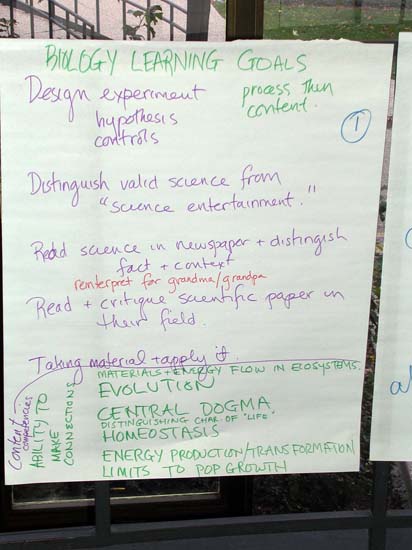 BIOLOGY LEARNING GOALS
Design experiment
process then
content.
hypothesis
controls
1
Distinguish valid science from
"science entertainment."
Read science in newspaper + distingish
fact + context
reinterpret for grandma/grandpa
Read + critique scientific paper in
their field.
Taking material + apply it.
Content
competencies
ABILITY TO
MAKE
CONNECTIONS
MATERIALS + ENERGY FLOW IN ECOSYSTEMS.
EVOLUTION
CENTRAL DOGMA
DISTINGUISHING CHAR. OF "LIFE"
HOMEOSTASIS
ENERGY PRODUCTION/TRANSFORMATION
LIMITS TO POP GROWTH